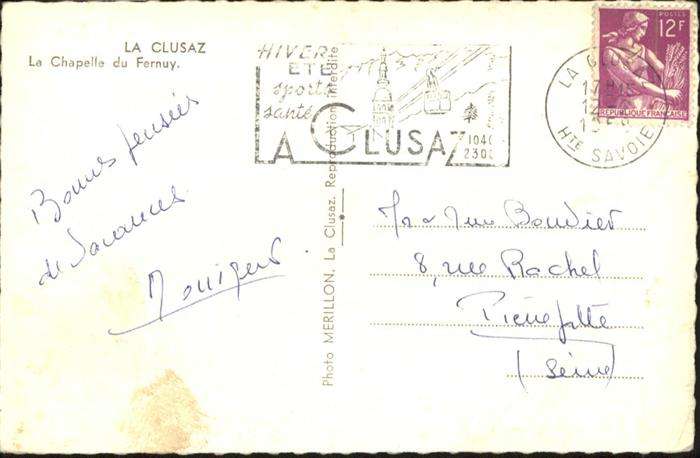 LA CLUSAZ
La Chapelle du Fernuy.
Bonnes pensées
de Vacances
HIVER
ETE
sports
santé
LA CLUSAZ
1040
2300
LA CLUSAZ
17H
12
HTE SAVOIE
POSTES
12F
REPUBLIQUE FRANÇAISE
Photo MERILLON, La Clusaz. Reproduction interdite
Mr & Mme Boudier
8, rue Rachel
Pierrefitte
(Seine)